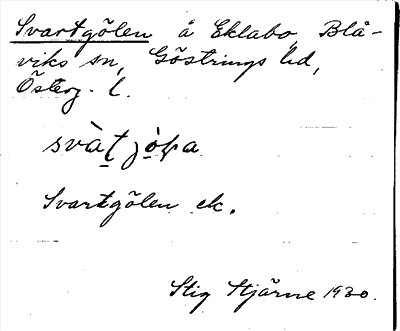 Svartgölen å Eklabo, Blå-
viks sn, Göstrings hd,
Österg. l.
svàt̠jò̠pa
Svartgölen ek.
Stig Stjärne 1930.